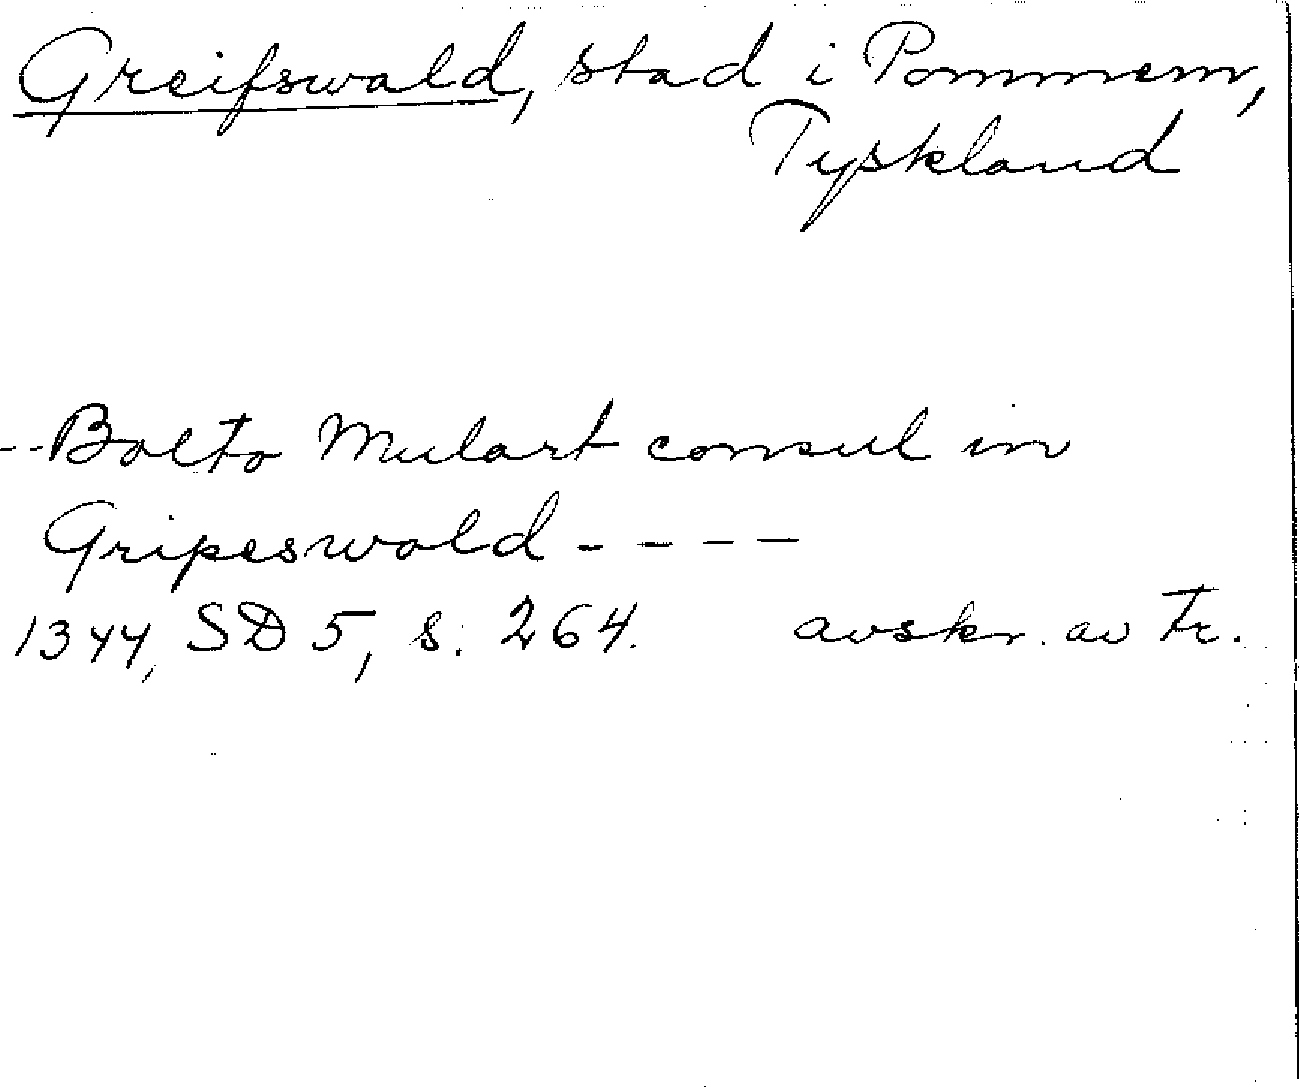 Greifswald, stad i Pommern,
Tyskland
-- Bolto Mulart consul in
Gripeswold - - - -
1344, SD 5, s. 264. avskr. av tr.